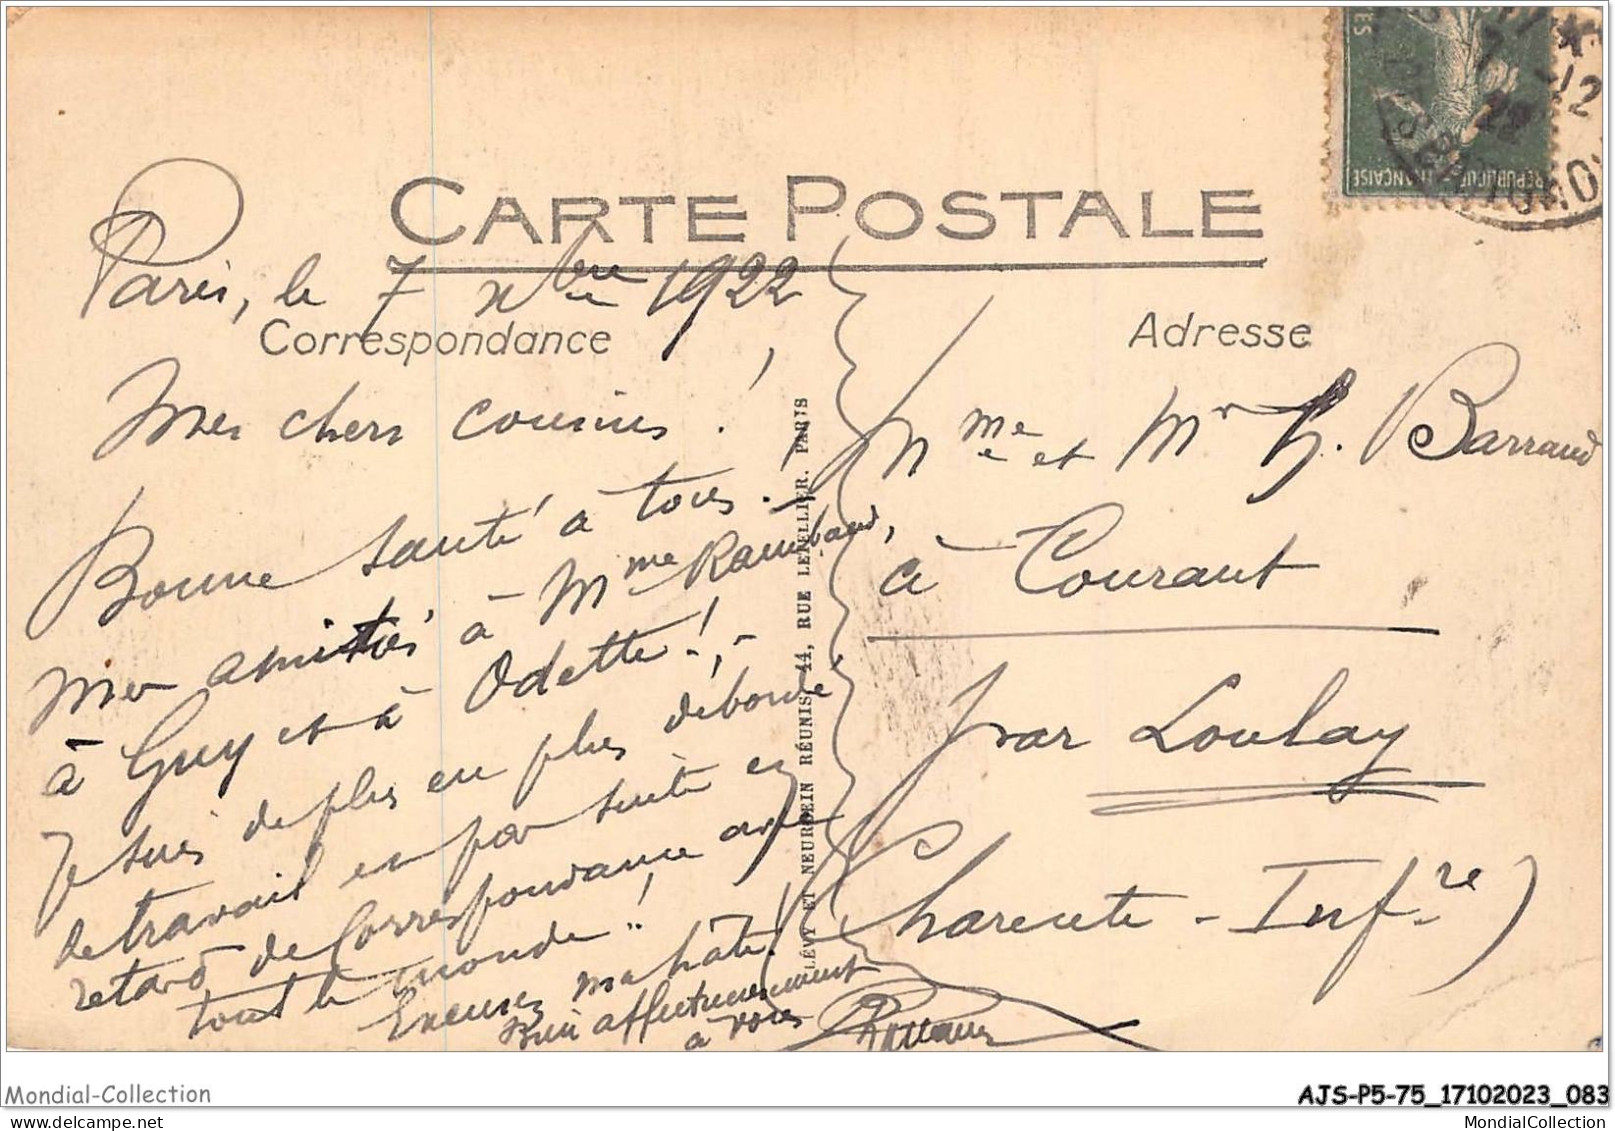 CARTE POSTALE
Paris, le 7 xbre 1922
Correspondance
Mes chers cousins !
Bonne santé à tous.
Mes amitiés à Mme Raimbaud,
à Guy et à Odette !, -
Je suis de plus en plus débordé
de travail et par suite en
retard de Correspondance avec
tout le monde !!
Excusez ma hâte !
Bien affectueusement
à vous
LÉVY ET NEURDEIN RÉUNIS, 44, RUE LETELLIER. PARIS
Adresse
Mme et Mr H. Barraud
à Courant
par Loulay
Charente-Infre)
RÉPUBLIQUE FRANÇAISE
7 -12
22
Mondial-Collection
AJS-P5-75_17102023_083
MondialCollection.com